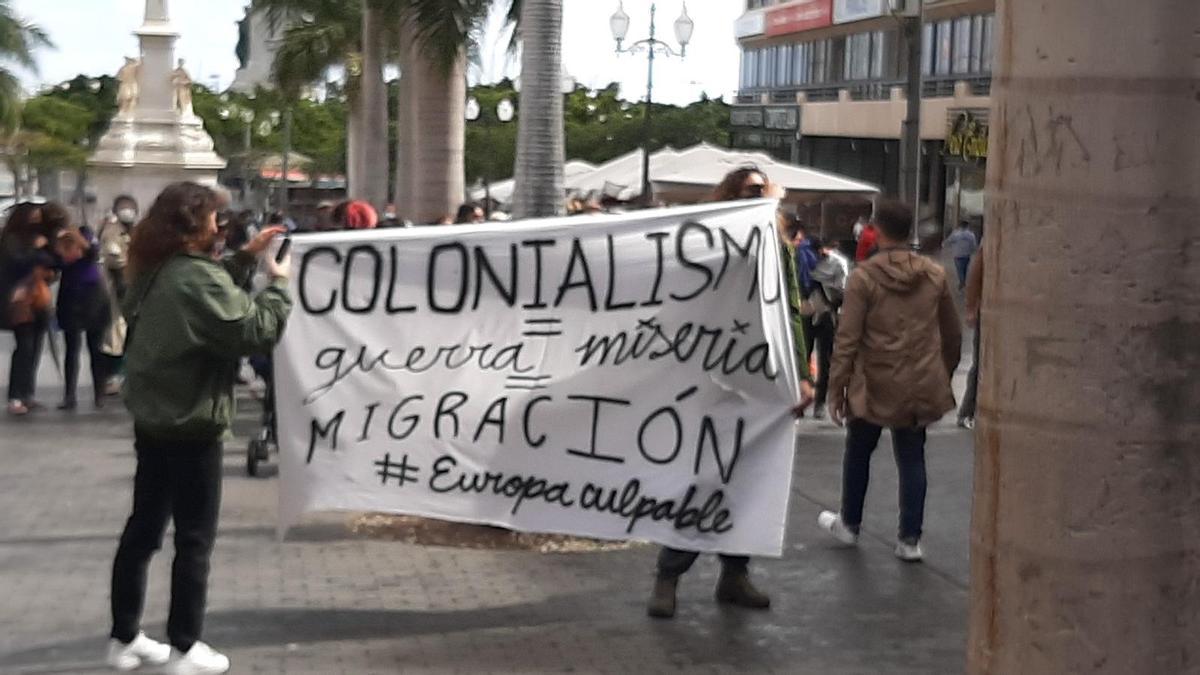 COLONIALISMO
=
guerra = miseria
=
MIGRACIÓN
#Europa culpable